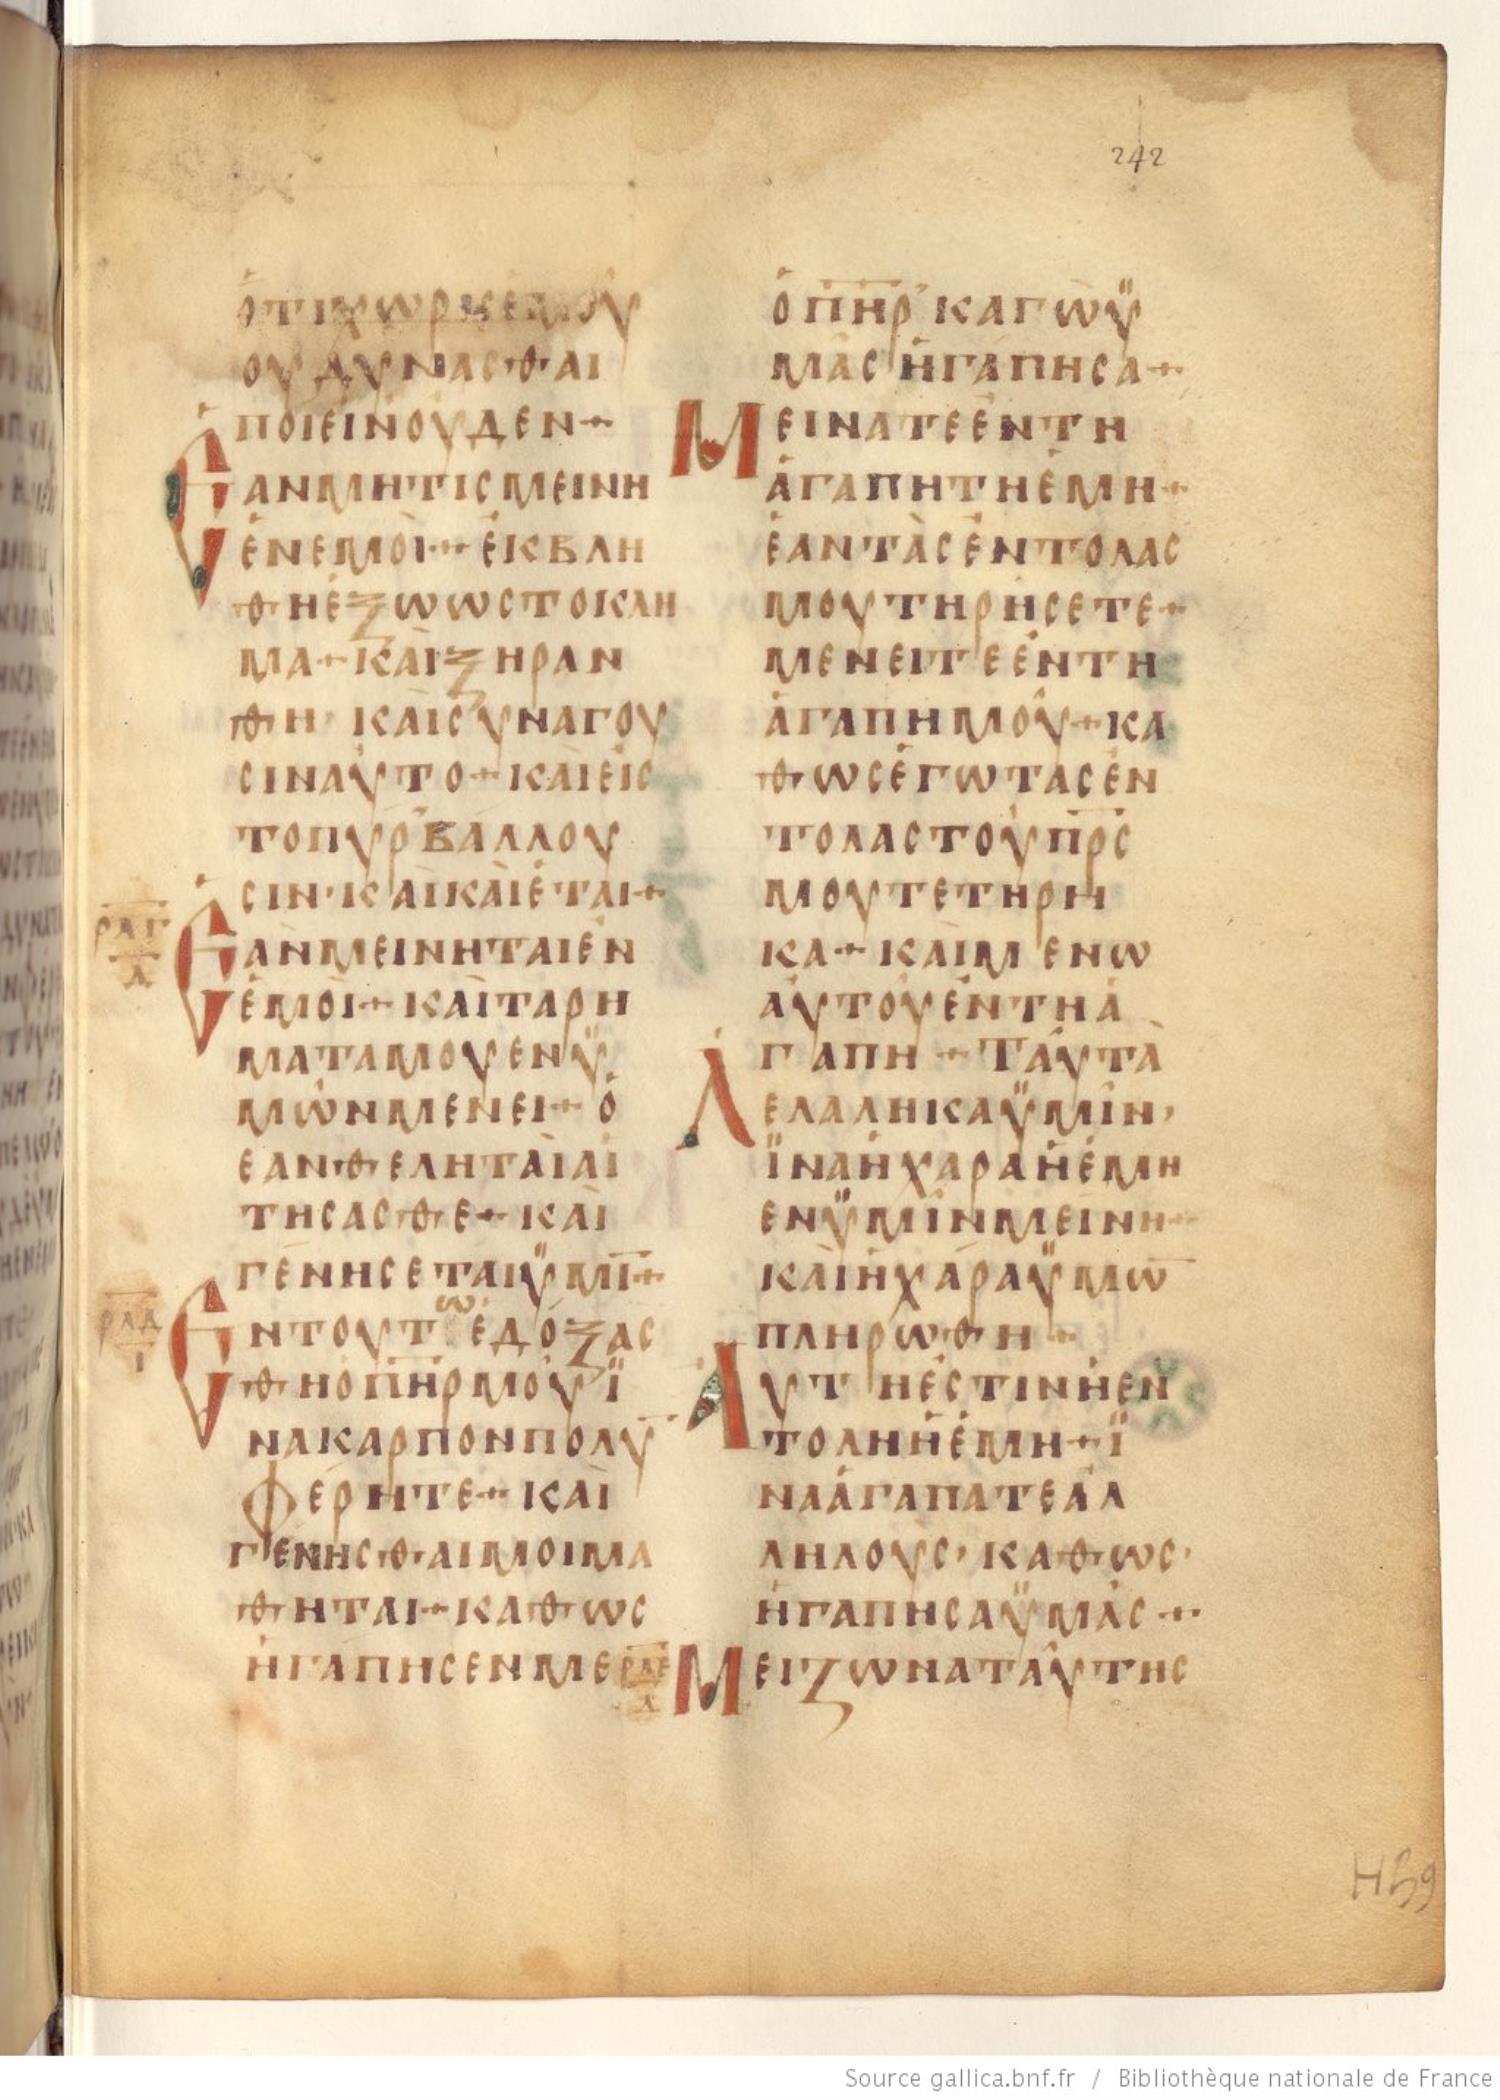 242
ὅτι χωρὶς ἐμοῦ
οὐ δύνασθαι
ποιεῖν οὐδέν +
Ἐὰν μή τις μείνη
ἐν ἐμοὶ + ἐκβλη
θη ἔξω ὡς το κλη
μα + καὶ ξηραν
θη καὶ συναγου
σιν αὐτο + καὶ εἰς
το πυρ βαλλου
σιν · καὶ καὶέται +
ρλγ
δ
Ἐὰν μεινηται ἐν
ἐμοὶ + καὶ τα ρη
ματα μου ἐν ϋ
μῶν μενει + ὁ
ἐαν θελητα
ὶ αἰ
τησασθε + καὶ
γενησεται ϋμῖ +
ρλδ
ι
Ἐν τουτω ἐδοξασ
θη ὁ πηρ μοῦ ἵ
να καρπον πολυ
φερητε + καὶ
γένησθαι μοι μα
θηται + καθως
ἠγαπησεν με
ὁ πηρ καγὼ ϋ
μᾶς ἠγάπησα +
Μεινατε ἐν τη
ἀγαπη τη ἐμη +
ἐαν τὰς ἐντολας
μου τηρησετε +
μενειτε ἐν τη
ἀγαπη μοῦ + κα
θως ἐγω τας ἐν
τολας τοῦ πρς
μου τετηρη
κα + καὶ μενω
αὐτοῦ ἐν τη ἀ
γαπη + Ταῦτὰ
λελαληκα ϋμῖν,
ἵνα ἡ χαρα ἡ ἐμη
ἐν ϋμῖν μείνη +
καὶ ἡ χαρα ϋμῶ
πληρωθη +
Αὑτη ἐστιν ἡ ἐν
τολη ἡ ἐμη + ἵ
να ἀγαπατε ἀλ
ληλοὺς, καθως
ἠγαπησα ϋμᾶς +
ρλε
δ
Μειζωνα ταύτης
Source gallica.bnf.fr / Bibliothèque nationale de France